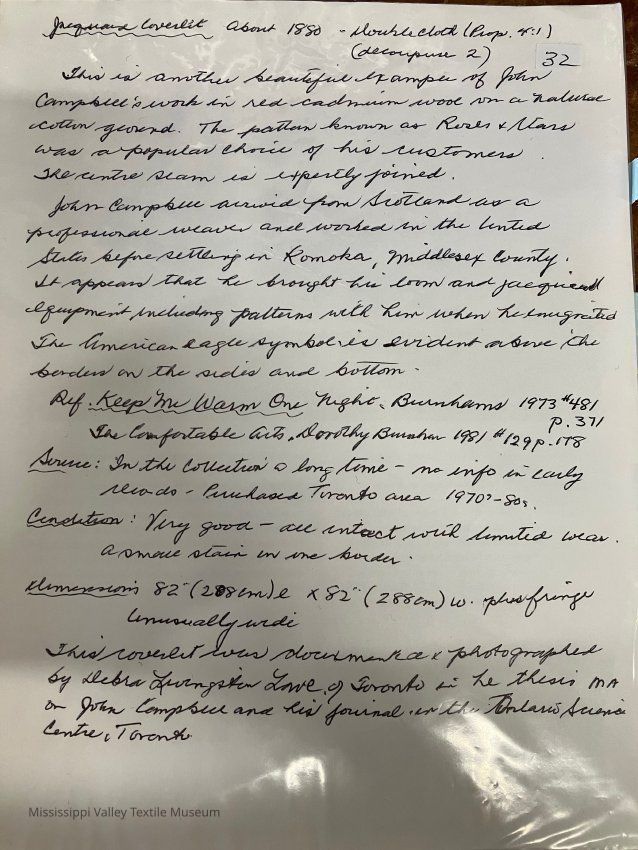 Jacquard Coverlet About 1880 - Doublecloth (Prop. 4:1)
(decoupure 2)
32
This is another beautiful example of John
Campbell's work in red cadmium wool on a natural
cotton ground. The pattern known as Roses & Stars
was a popular choice of his customers.
The centre seam is expertly joined.
John Campbell arrived from Scotland as a
professional weaver and worked in the United
States before settling in Komoka, Middlesex County.
It appears that he brought his loom and jacquard
equipment including patterns with him when he emigrated
The American eagle symbol is evident above the
borders on the sides and bottom.
Ref. Keep Me Warm One Night, Burnhams 1973 #481
p. 371
The Comfortable Arts, Dorothy Burnham 1981 #129 p. 178
Source: In the Collection a long time - no info in early
records - Purchased Toronto area 1970's-80s.
Condition: Very good - all intact with limited wear.
a small stain in one border.
Dimensions 82" (288cm) l x 82" (288cm) w. plus fringe
Unusually wide
This coverlet was documented & photographed
by Debra Livingston Lowe, of Toronto in he thesis MA
on John Campbell and his journal in the Ontario Science
Centre, Toronto.
Mississippi Valley Textile Museum